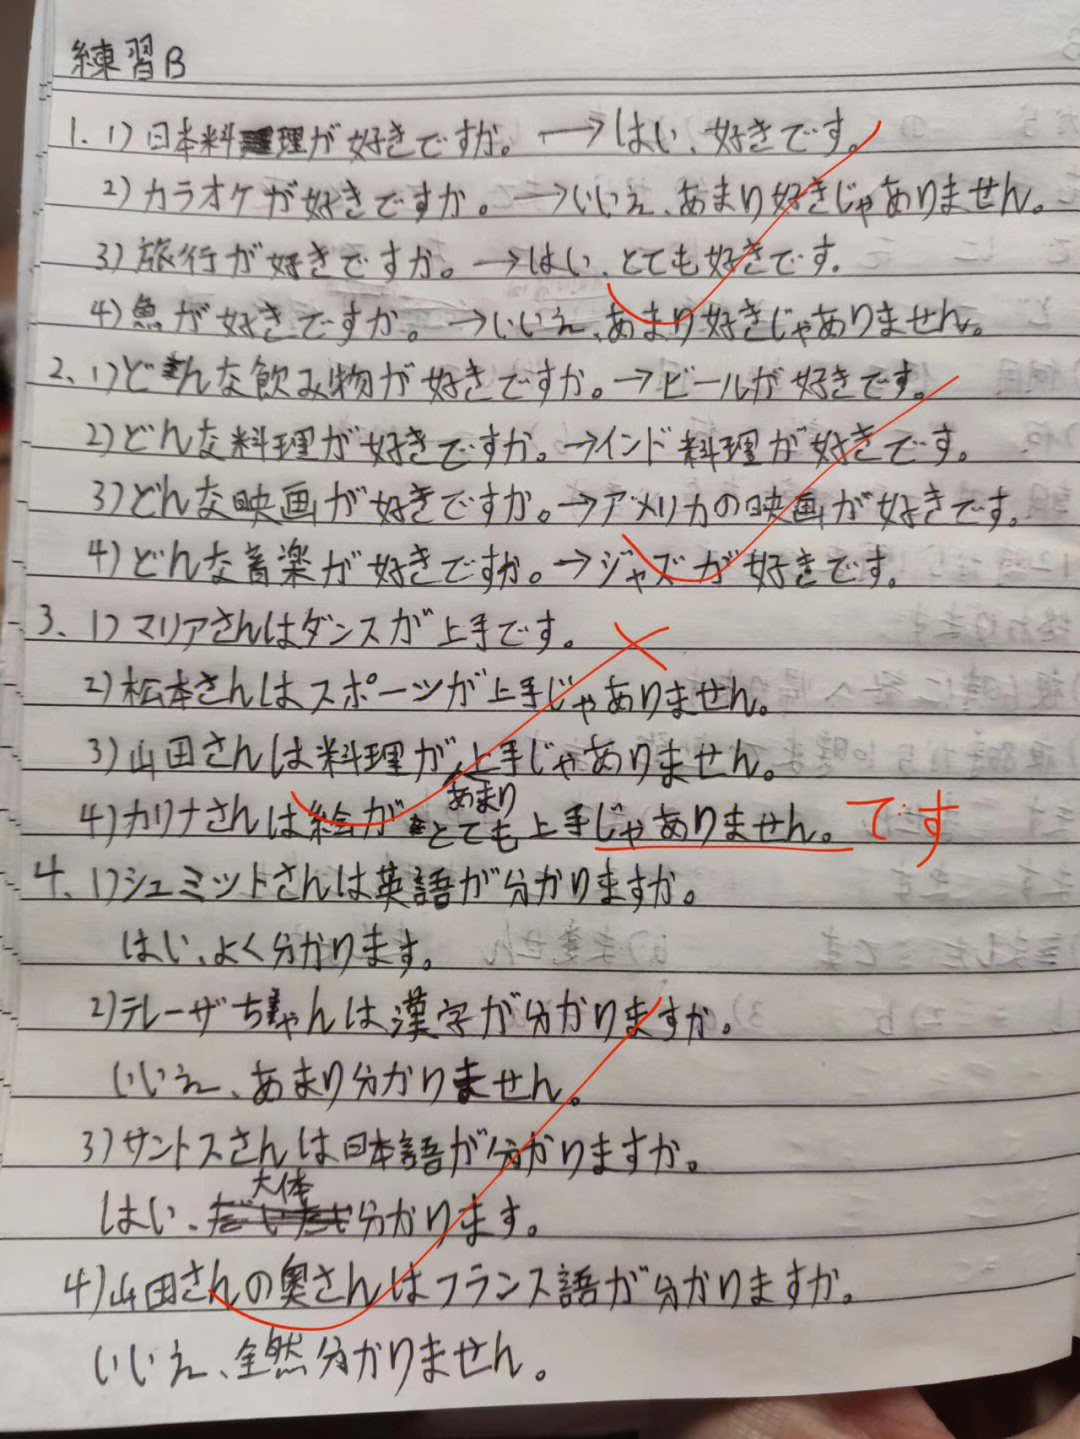 練習B
1. 1)日本料理が好きですか。→はい、好きです。
2)カラオケが好きですか。→いいえ、あまり好きじゃありません。
3)旅行が好きですか。→はい、とても好きです。
4)魚が好きですか。→いいえ、あまり好きじゃありません。
2、1)どんな飲み物が好きですか。→ビールが好きです。
2)どんな料理が好きですか。→インド料理が好きです。
3)どんな映画が好きですか。→アメリカの映画が好きです。
4)どんな音楽が好きですか。→ジャズが好きです。
3、1)マリアさんはダンスが上手です。
2)松本さんはスポーツが上手じゃありません。
3)山田さんは料理が上手じゃありません。
あまり
4)カリナさんは絵がとても上手じゃありません。です
4、1)シュミットさんは英語が分かりますか。
はい、よく分かります。
2)テレーザちゃんは漢字が分かりますか。
いいえ、あまり分かりません。
3)サントスさんは日本語が分かりますか。
大体
はい、分かります。
4)山田さんの奥さんはフランス語が分かりますか。
いいえ、全然分かりません。